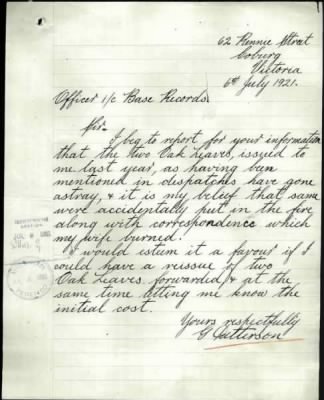 62 Rennie Street
Coburg
Victoria
6th July 1921.
Officer i/c Base Records.
Sir,
I beg to report for your information
that the two Oak Leaves, issued to
me last year, as having been
mentioned in dispatches have gone
astray, & it is my belief that same
were accidentally put in the fire
along with correspondence which
my wife burned.
I would estum it a favour if I
could have a reissue of two
Oak Leaves forwarded & at
the same time letting me know the
initial cost.
Yours respectfully
G Patterson